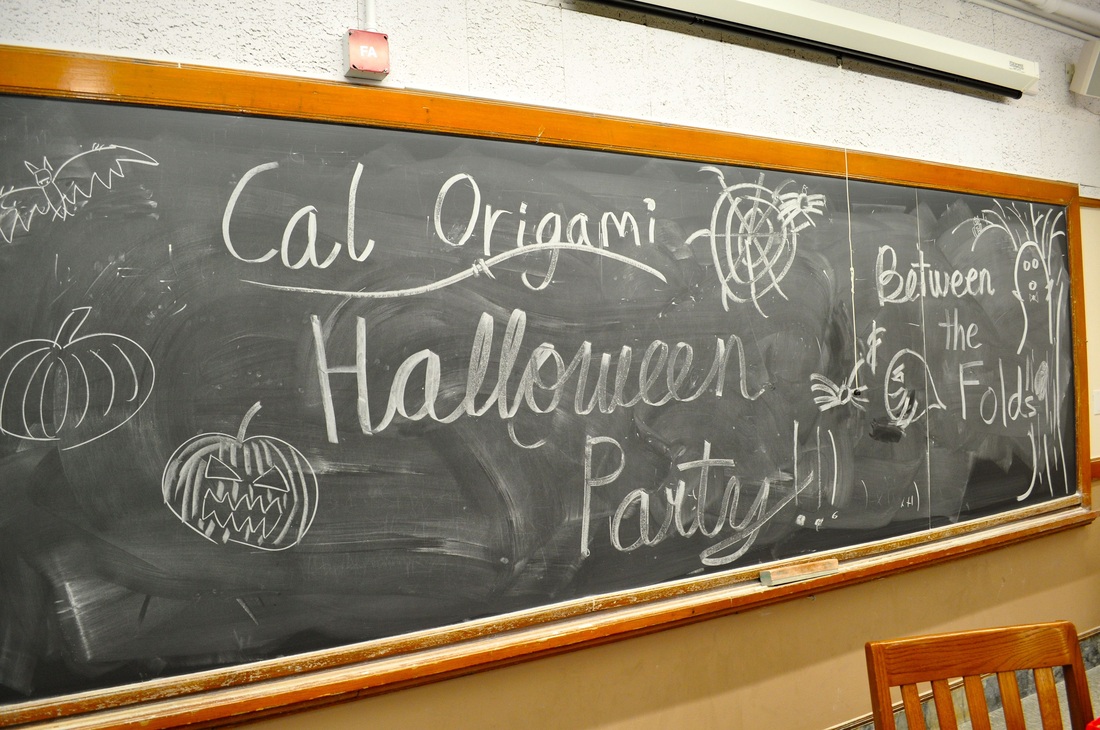 FA
Cal Origami
Halloween
Party!!!
&
Between
the
Folds